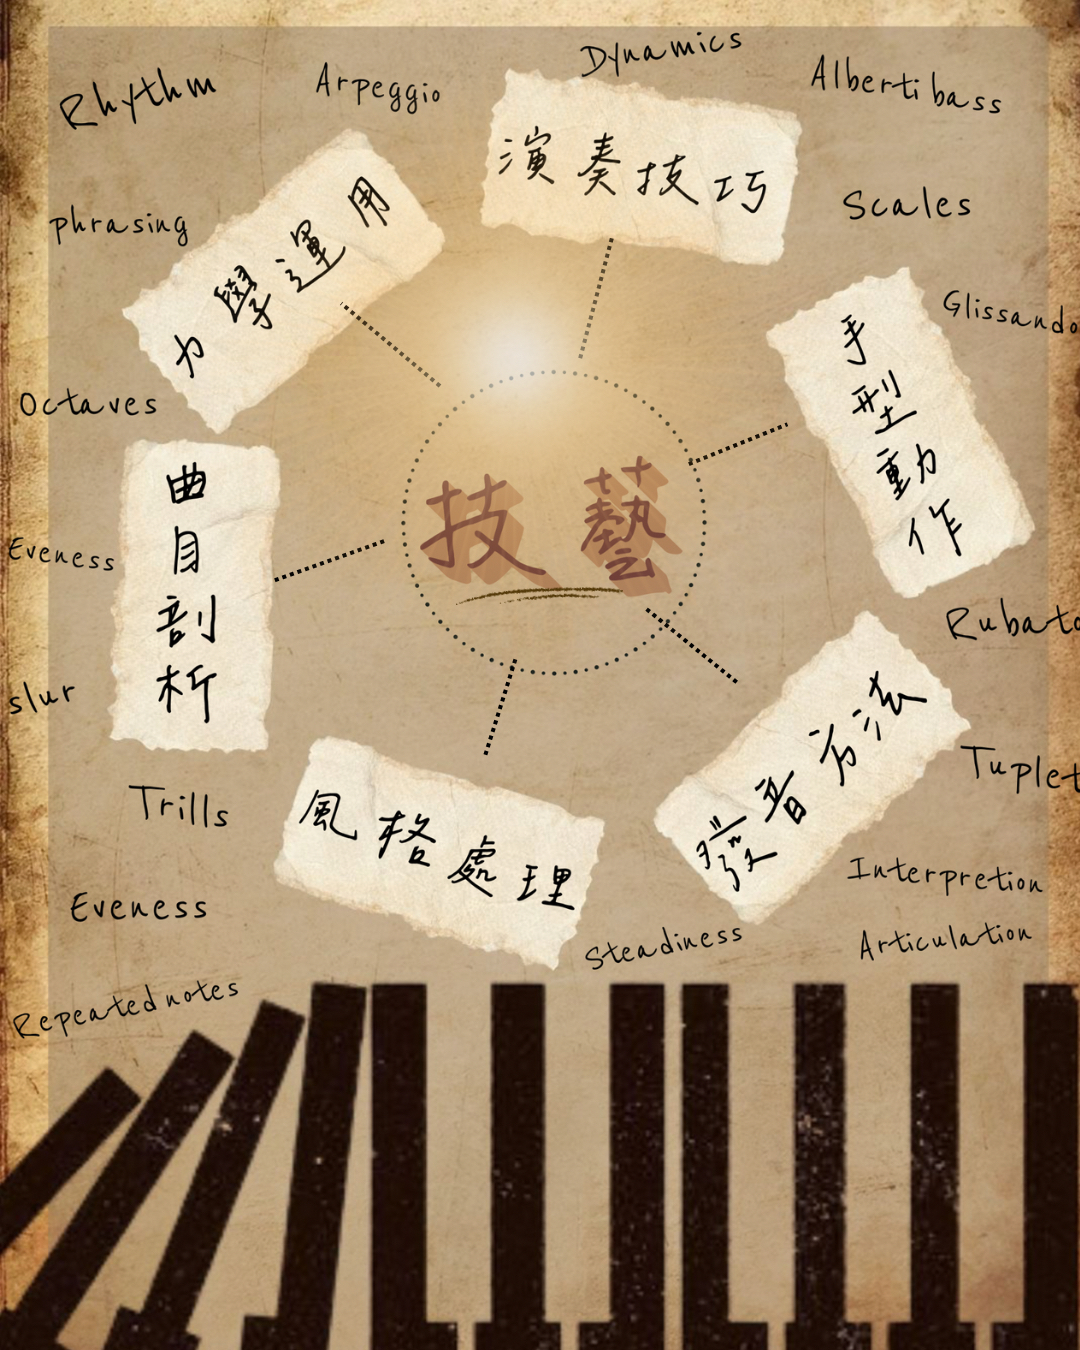 Dynamics
Rhythm
Arpeggio
Alberti bass
演奏技巧
phrasing
力學運用
Scales
Glissando
手型動作
Octaves
曲目剖析
技藝
Eveness
Rubato
slur
發音方法
Tuplet
Trills
風格處理
Interpretion
Eveness
Steadiness
Articulation
Repeated notes